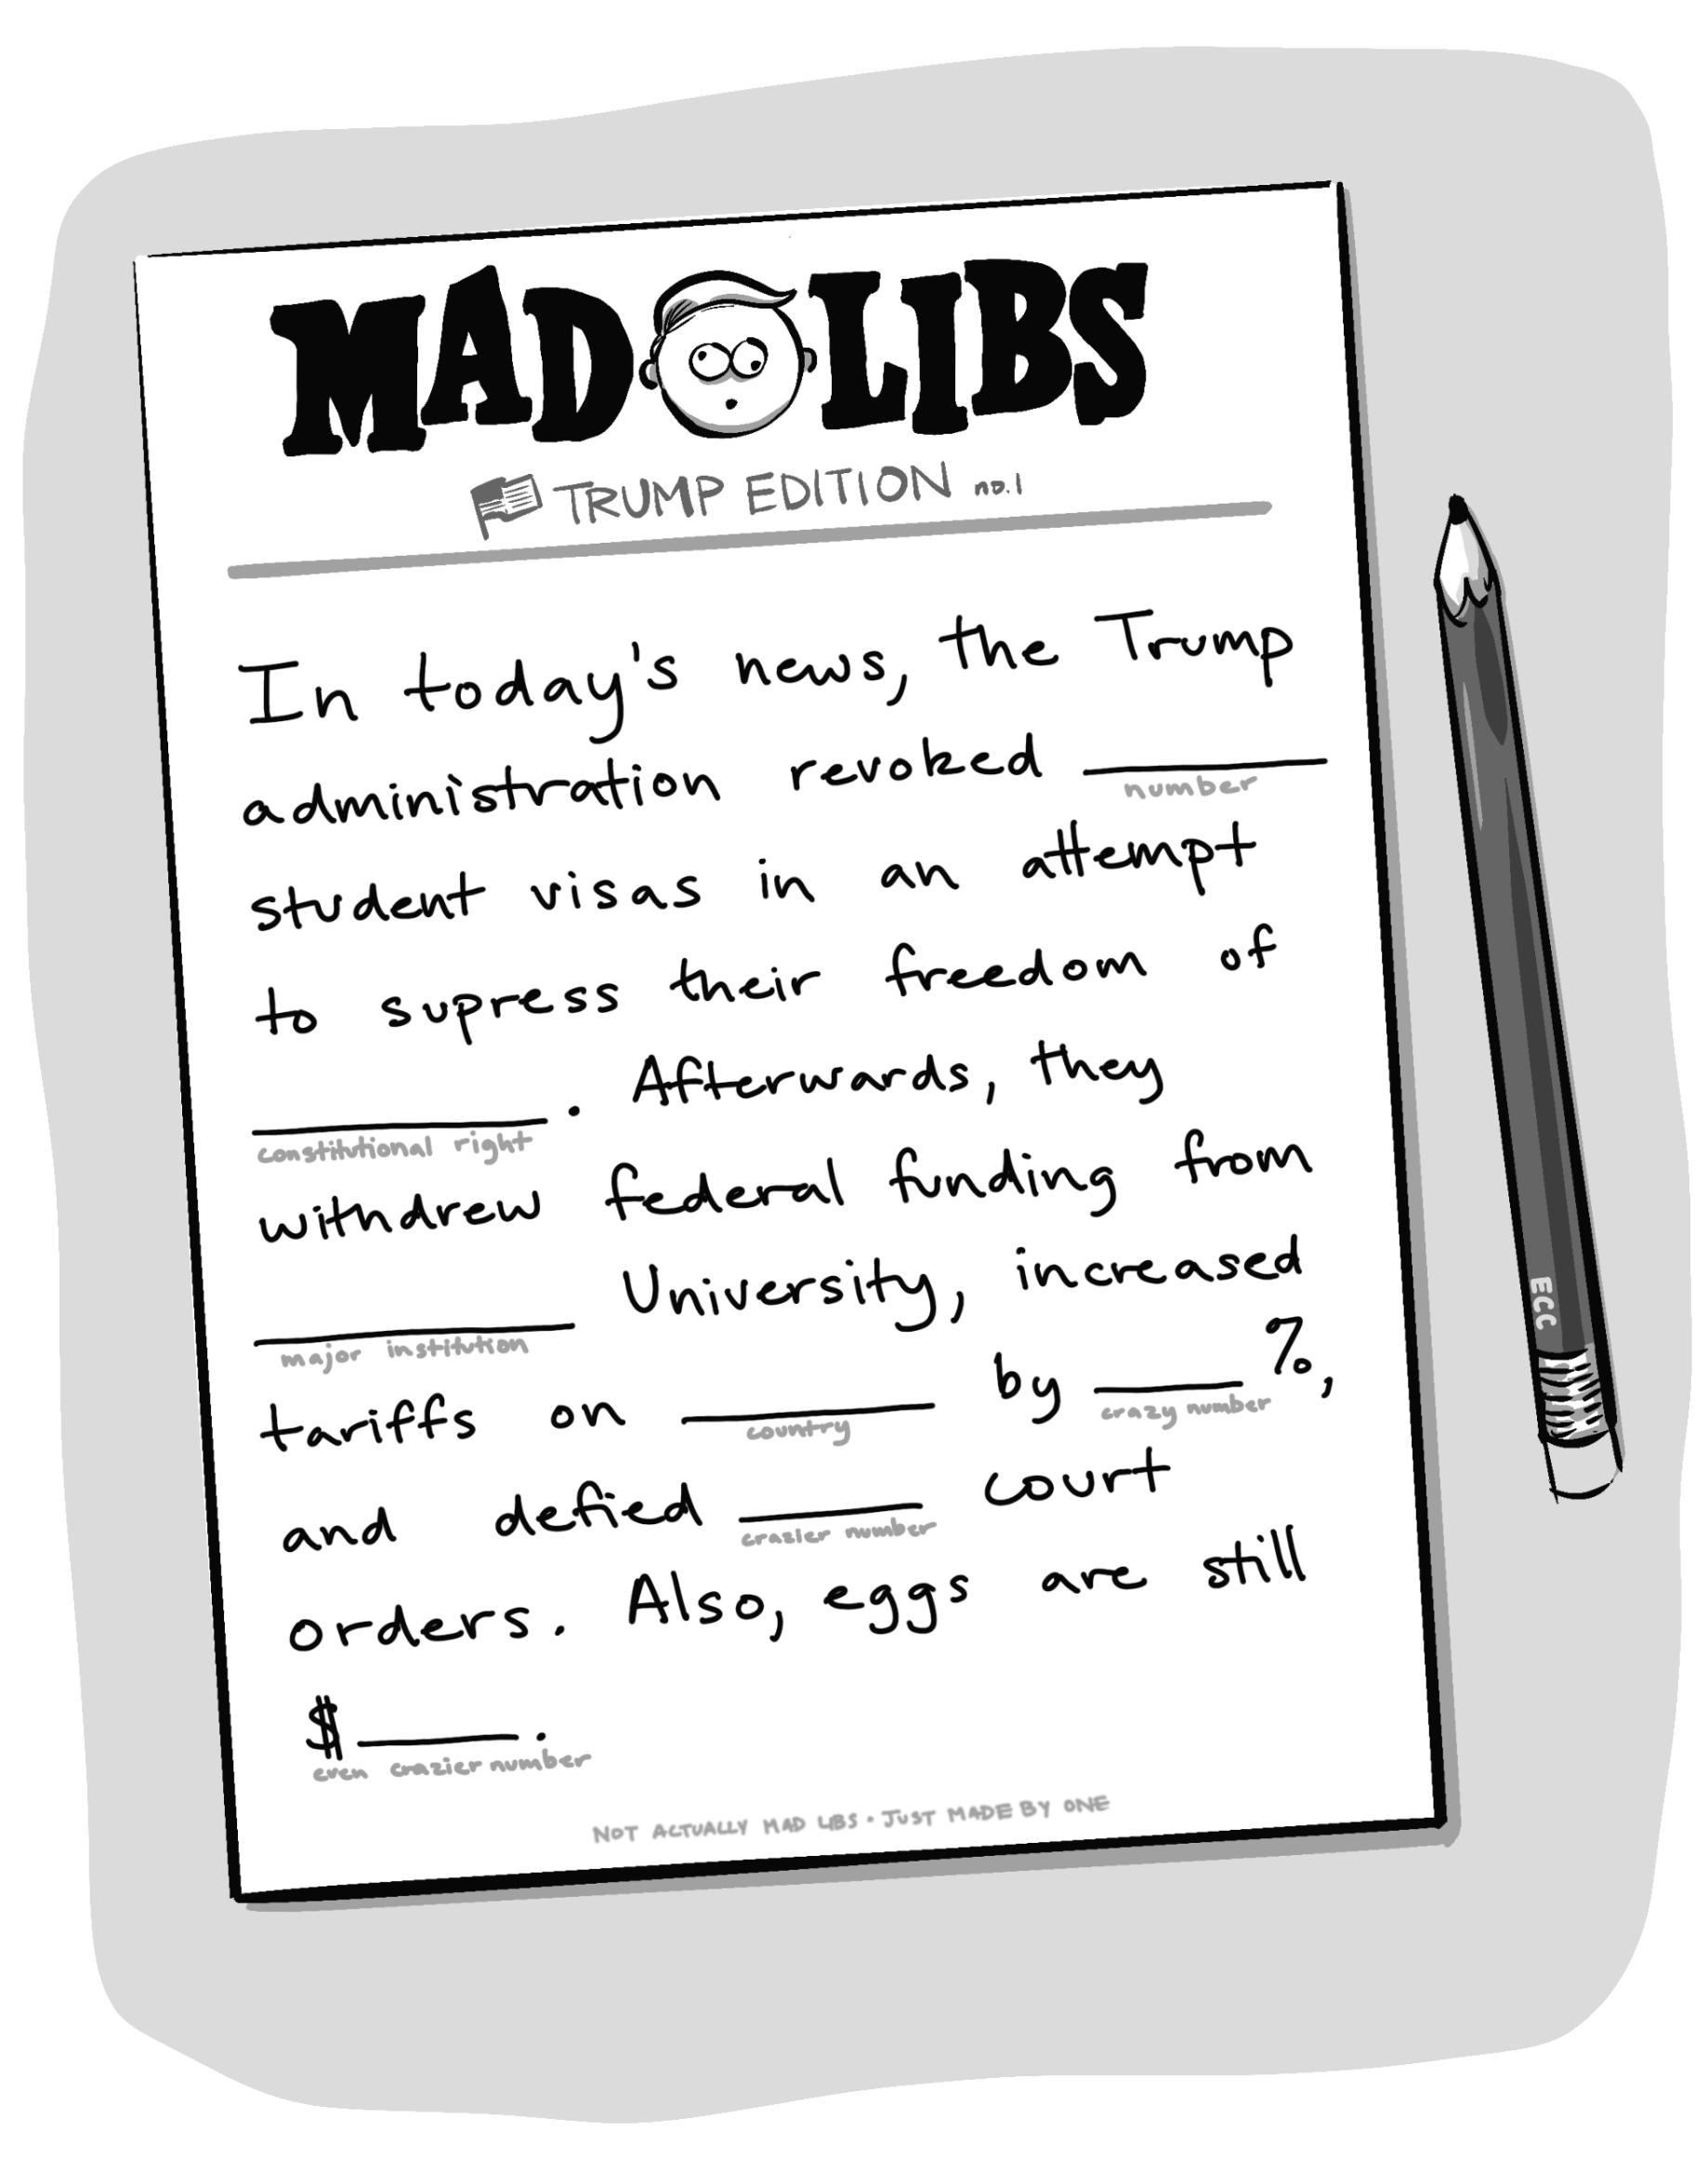 MAD LIBS
TRUMP EDITION no.1
In today's news, the Trump
administration revoked ________
number
student visas in an attempt
to supress their freedom of
________. Afterwards, they
constitutional right
withdrew federal funding from
________ University, increased
major institution
tariffs on ________ by ____%,
country crazy number
and defied ________ court
crazier number
orders. Also, eggs are still
$________.
even crazier number
NOT ACTUALLY MAD LIBS • JUST MADE BY ONE
ECC